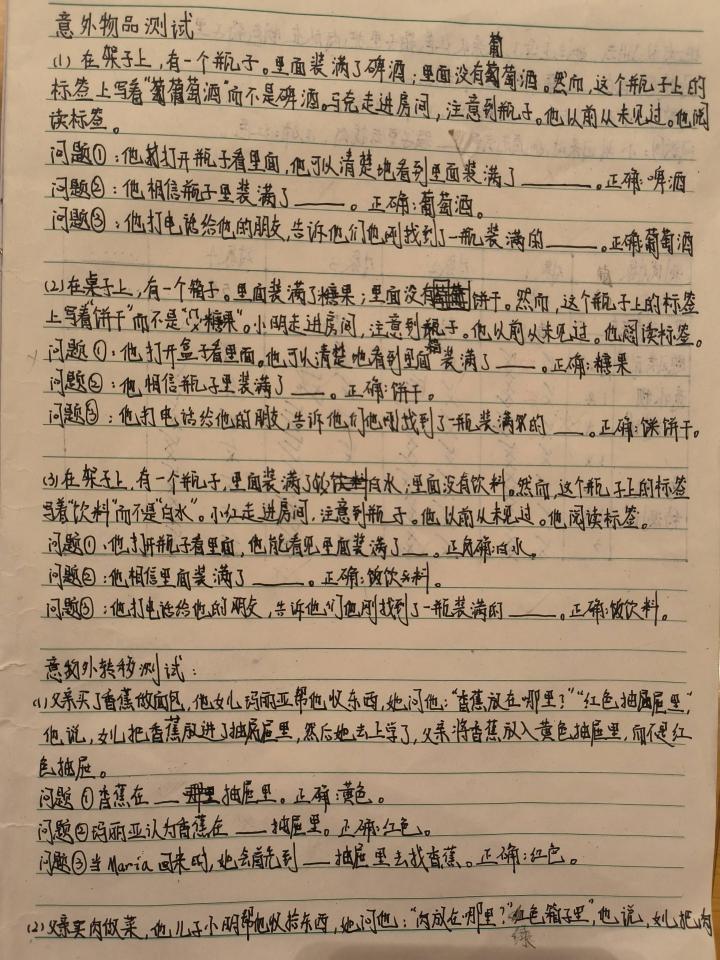 意外物品测试
(1) 在架子上，有一个瓶子。里面装满了啤酒；里面没有葡萄酒。然而，这个瓶子上的
标签上写着“葡萄酒”而不是啤酒。马克走进房间，注意到瓶子。他以前从未见过。他阅
读标签。
问题①：他打开瓶子看里面，他可以清楚地看到里面装满了______。正确：啤酒
问题②：他相信瓶子里装满了_____。正确：葡萄酒。
问题③：他打电话给他的朋友，告诉他们他刚找到了一瓶装满的_____。正确：葡萄酒
(2) 在桌子上，有一个箱子。里面装满了糖果；里面没有饼干。然而，这个瓶子上的标签
上写着“饼干”而不是“糖果”。小明走进房间，注意到瓶子。他以前从未见过。他阅读标签。
问题①：他打开盒子看里面。他可以清楚地看到里面装满了____。正确：糖果
问题②：他相信瓶子里装满了___。正确：饼干。
问题③：他打电话给他的朋友，告诉他们他刚找到了一瓶装满的___。正确：饼干。
(3) 在架子上，有一个瓶子，里面装满了白水；里面没有饮料。然而，这个瓶子上的标签
写着“饮料”而不是“白水”。小红走进房间，注意到瓶子。他以前从未见过。他阅读标签。
问题①：他打开瓶子看里面，他能看见里面装满了__。正确：白水。
问题②：他相信里面装满了_____。正确：饮料。
问题③：他打电话给他的朋友，告诉他们他刚找到了一瓶装满的_____。正确：饮料。
意外转移测试：
(1) 父亲买了香蕉做面包，他女儿玛丽亚帮他收东西，她问他：“香蕉放在哪里？”“红色抽屉里”，
他说，女儿把香蕉放进了抽屉里，然后她去上学了，父亲将香蕉放入黄色抽屉里，而不是红
色抽屉。
问题①香蕉在___抽屉里。正确：黄色。
问题②玛丽亚认为香蕉在____抽屉。正确：红色。
问题③当Maria回来时，她会首先到___抽屉里去找香蕉。正确：红色。
(2) 父亲买肉做菜，他儿子小明帮他收拾东西，她问他：“肉放在哪里？”绿色箱子里”，他说，女儿把肉